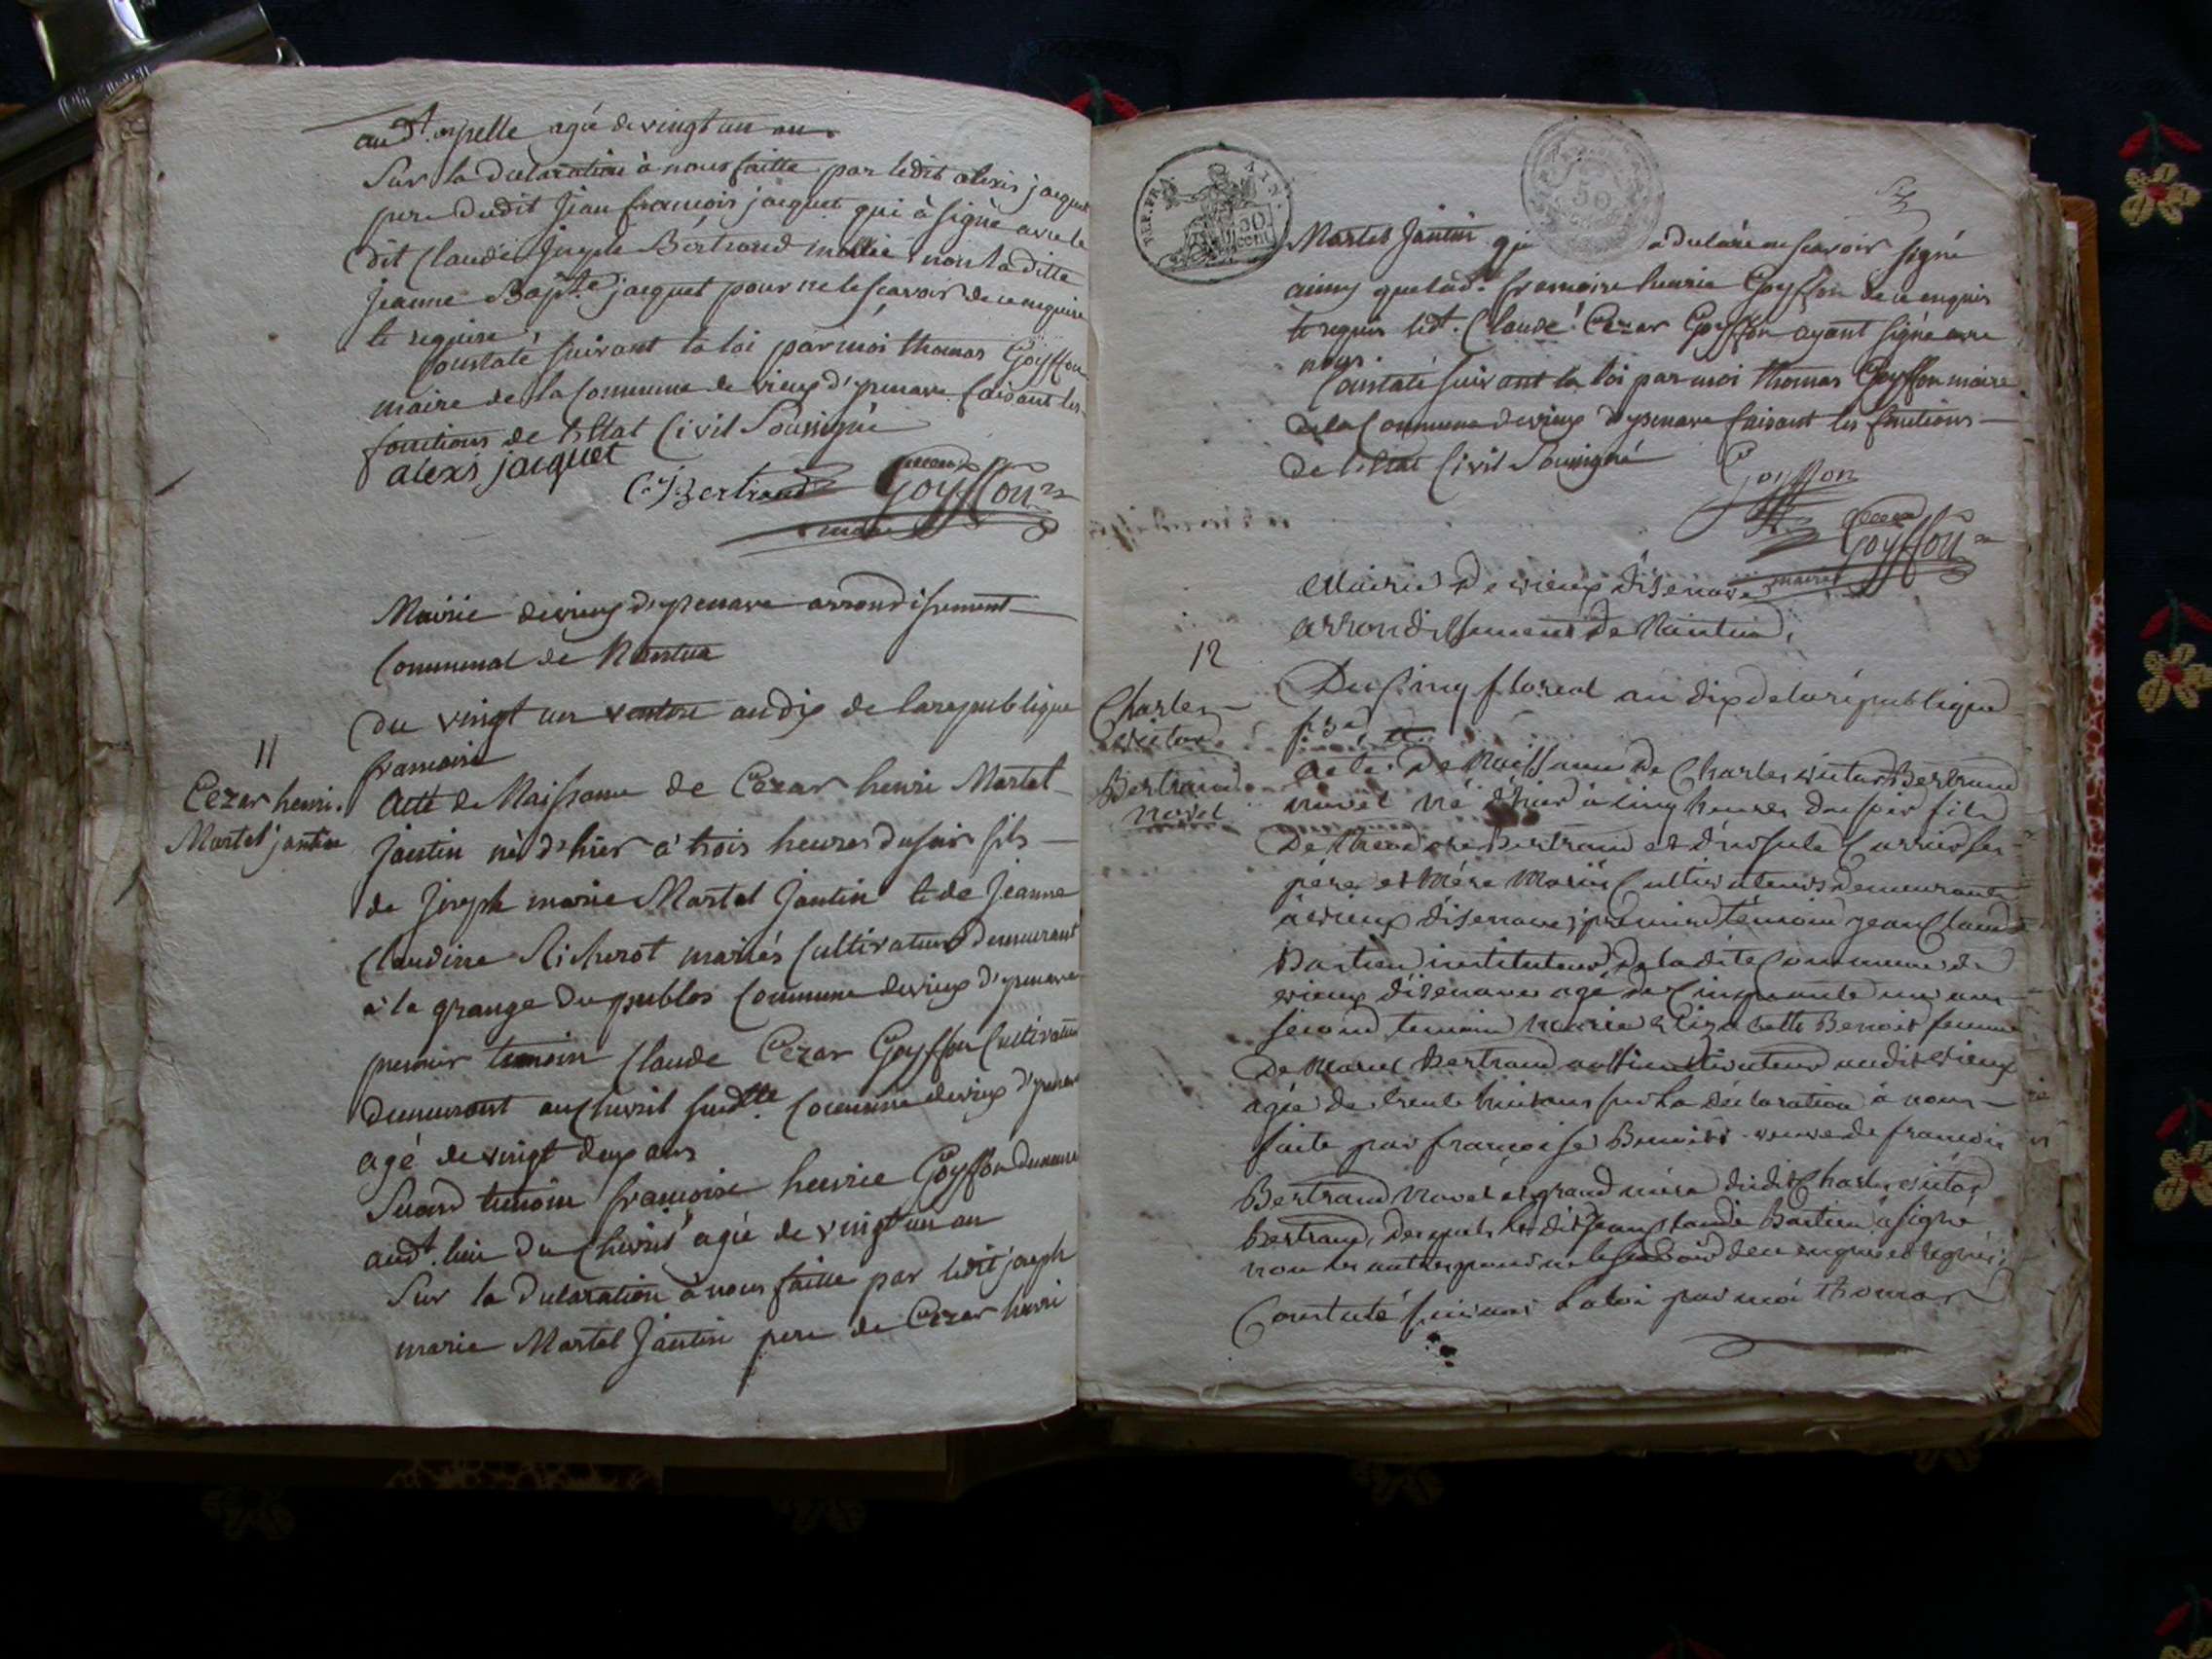 audt. apelle agée de vingt un an
Sur la declaration à nous faitte par ledit alexis jacquet
pere dudit Jean françois jacquet qui à signé avec le
dit Claude Joseph Bertrand non la ditte
Jeanne Bapte. jacquet pour ne le scavoir de ce enquise
te requise
Constaté suivant la loi par moi thomas Goyffon
maire de la Commune de vieux d'yzenave faisant les
fonctions de l'Etat Civil Soussigné
alexis jacquet
C. J. Bertrand Goyffon
maire
Mairie de vieux d'yzenave arrondissement
Communal de Nantua
Du vingt un ventose an dix de la republique
francoise
11
Cezar henri
Martel jantin
Acte de Naissance de Cezar henri Martel
Jantin né d'hier à trois heures du soir fils
de Joseph marie Martel Jantin te de Jeanne
Claudine Richerot mariés Cultivateurs demeurant
à la grange du Commune de vieux d'yzenave
premier temoin Claude Cezar Goyffon Cultivateur
demeurant au Chevril Commune de vieux d'yzenave
agé de vingt deux ans
Second temoin francoise henrie Goyffon demeure
audt. lieu du Chevril agée de vingt un an
Sur la declaration à nous faitte par ledit joseph
marie Martel Jantin pere de Cezar henri
REP. FRA. AIN.
50 cent
50
Martel Jantin qui a declaré ne scavoir signé
ainsy que lad. francoise henrie Goyffon de ce enquis
te requis ledt. Claude Cezar Goyffon ayant signé avec
nous.
Constaté suivant la loi par moi thomas Goyffon maire
de la Commune de vieux d'yzenave faisant les fonctions
de l'Etat Civil Soussigné
Goyffon
Goyffon
maire
Mairie de vieux d'isenave
arrondissement de Nantua,
12
Charles
victor
Bertrand
novel
Du Cinq floreal an dix de la république
fse.
Acte de Naissance de Charles victor Bertrand
novel né d'hier à cinq heures du soir fils
De Bertrand et d'ursule Carrier ses
père et mère mariés Cultivateurs demeurants
à vieux d'isenave, premier témoin jean Claude
Bastien instituteur de la dite Commune de
vieux d'isenave agé de Cinquante un ans
second temoin marie Elizabette Benoit femme
De marc Bertrand cultivateur audit vieux
agée de trente huit ans sur la déclaration à nous
faite par françoise Benoit veuve de francois
Bertrand novel et grand mère dudit Charles victor
bertrand, desquels ledit jean Claude Bastien a signé
non les autres pour ne le scavoir de ce enquis et requis,
Constaté suivant la loi par moi thomas